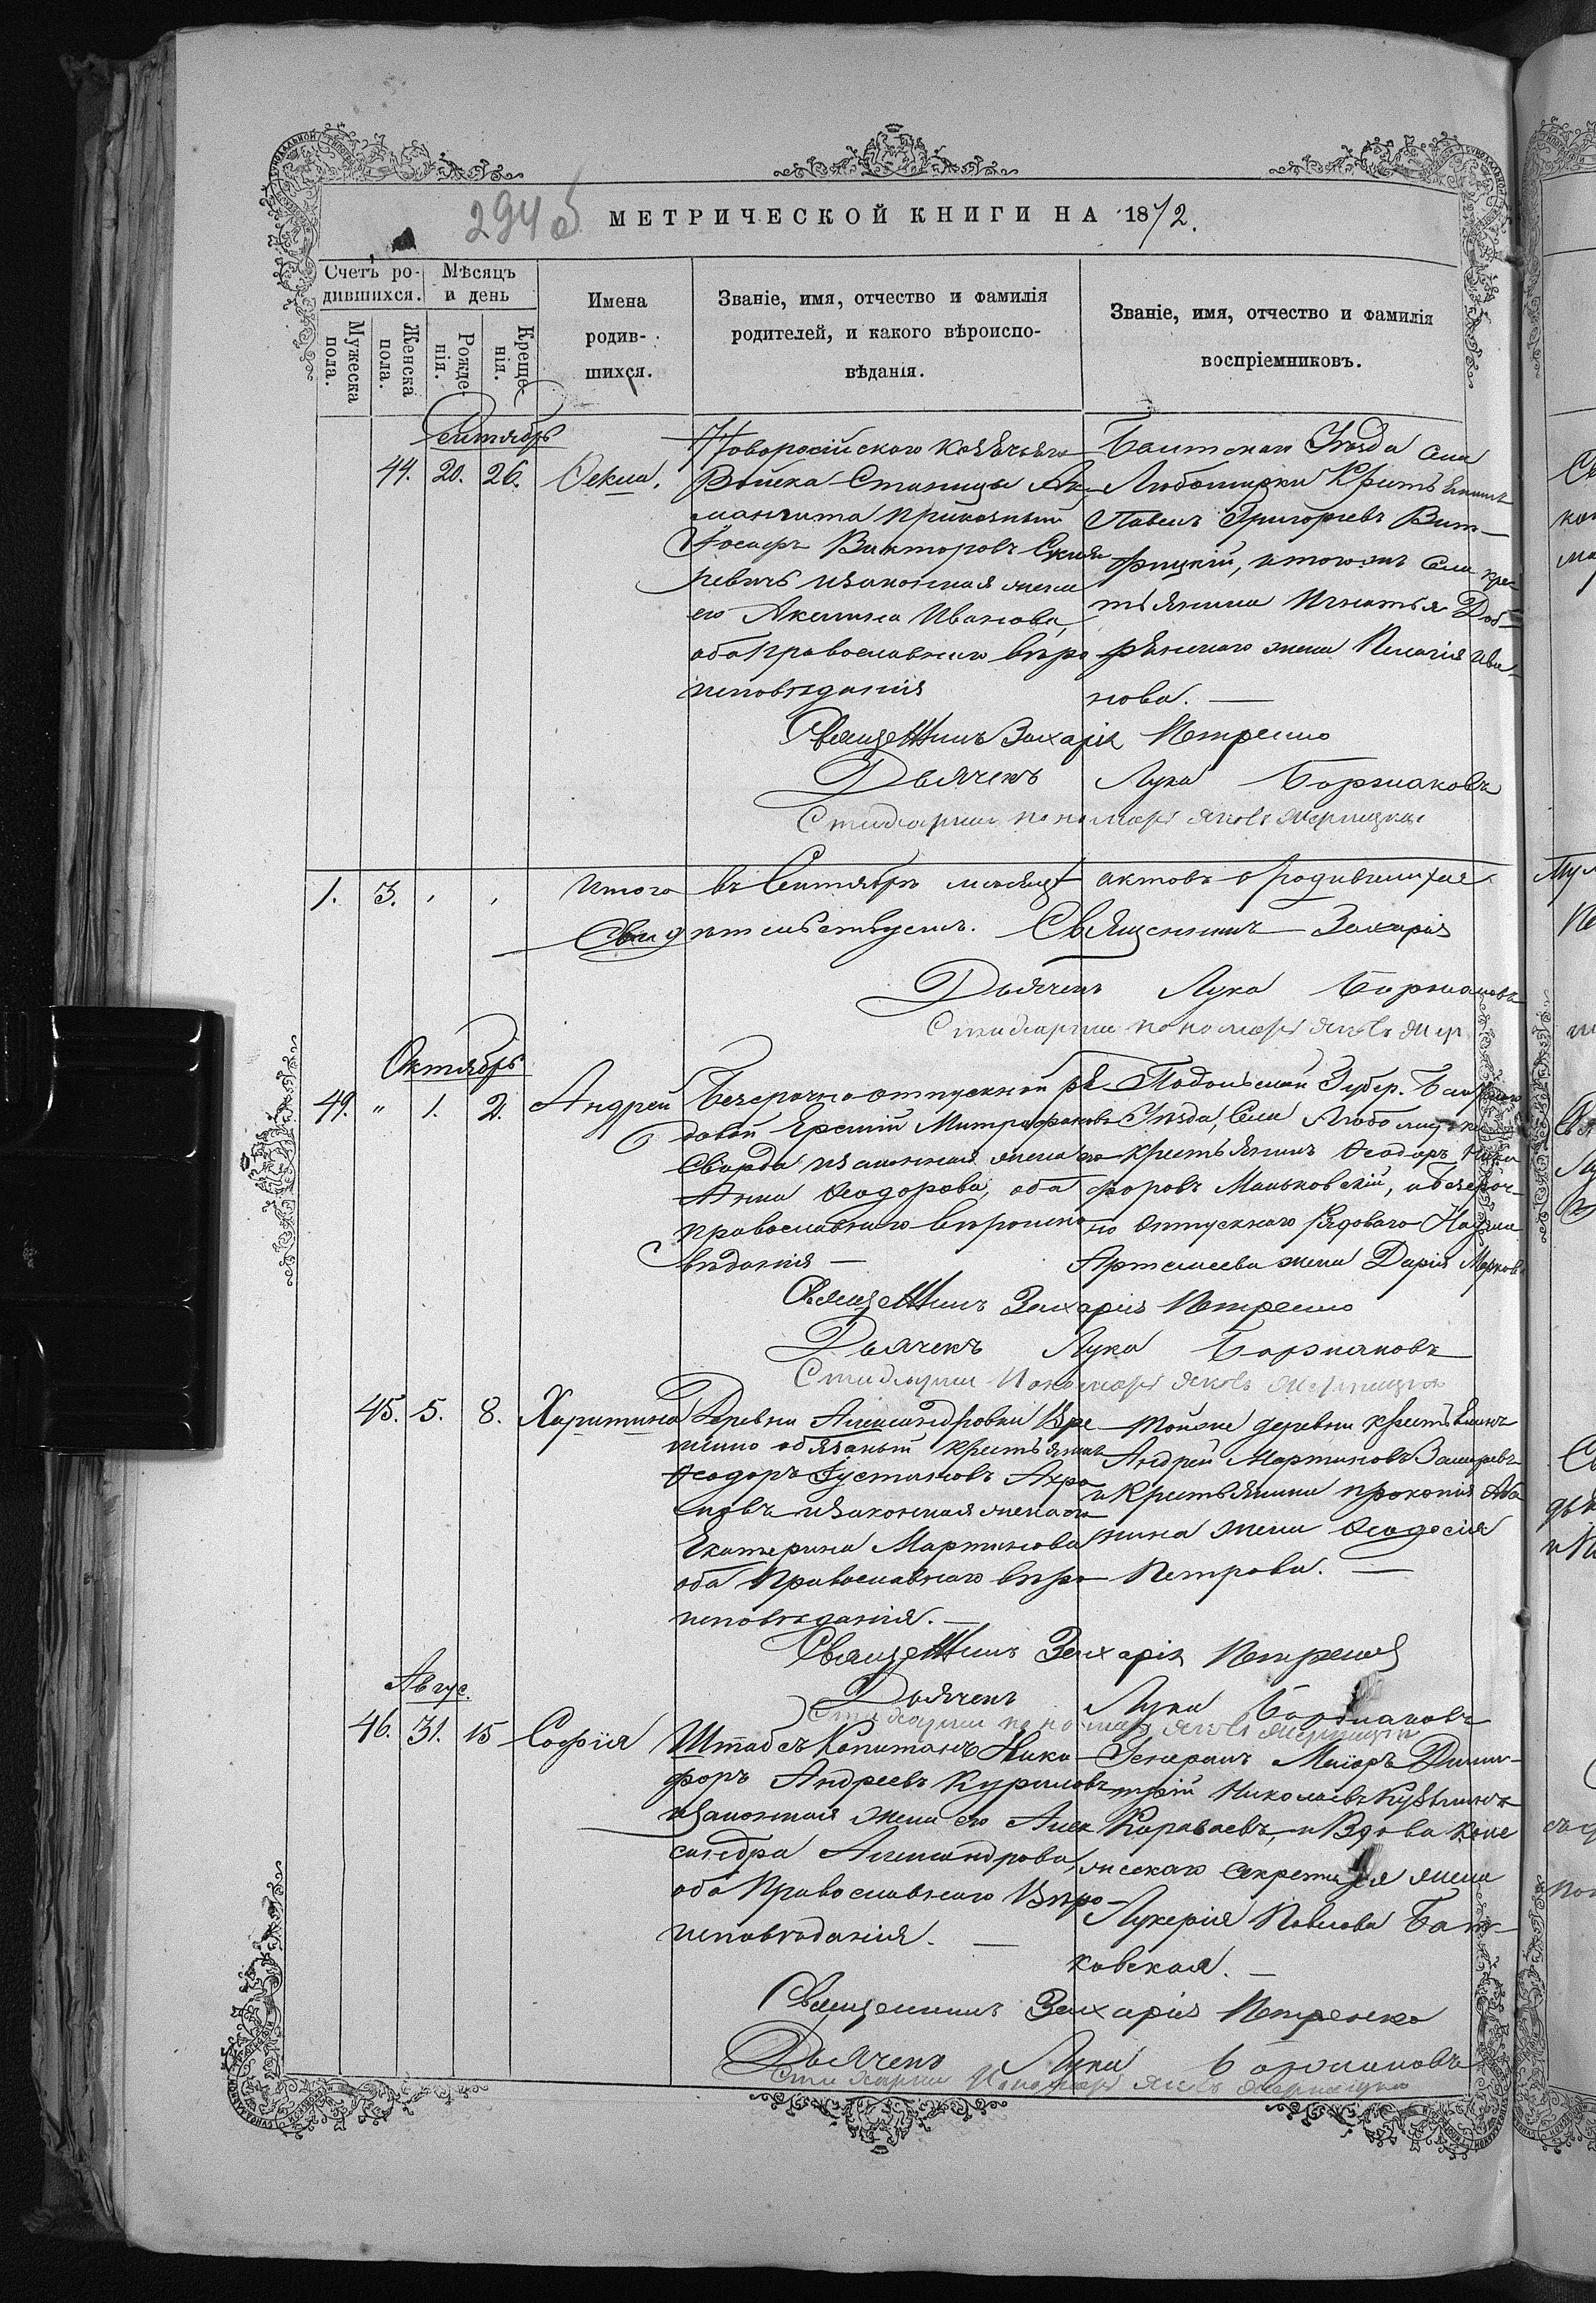 294 б МЕТРИЧЕСКОЙ КНИГИ НА 1872.
Счетъ ро-
дившихся.
Мѣсяцъ
и день
Мужеска
пола.
Женска
пола.
Рожде-
нія.
Креще-
нія.
Имена
родив-
шихся.
Званіе, имя, отчество и фамилія
родителей, и какого вѣроиспо-
вѣданія.
Званіе, имя, отчество и фамилія
воспріемниковъ.
Сентябрь
44. 20. 26. Оекла.
Новоросійского козачьяго
Войска Станицы Ак-
мангита приказный
Іосифъ Викторовъ
ревичъ и законная жена
его Акилина Иванова,
оба православнаго вѣро
исповѣданія
Балтскаго Уѣзда села
Любомирки Крестьянинъ
Павелъ Григорьевъ Вит-
фицкій, и того же села кре-
стьянина Игнатія Доб-
жена Пелагія Ива-
нова. —
Священникъ Захарія Петренко
Дьячекъ Лука Боржаковъ
Стихарный пономарь Яковъ
1. 3. Итого въ Сентябрѣ мѣсяцѣ актовъ о родившихся
Свидѣтельствуемъ. Священникъ Захарія
Дьячекъ Лука Боржаковъ
Стихарный пономарь Яковъ
Октябрь
49. " 1. 2. Андрей
Безсрочно-отпускной ря-
довой Ермій Митрофановъ
Сварда и законная жена его
Анна Ѳеодорова, оба
православнаго вѣроиспо
вѣданія —
Подольской Губер. Балтскаго
Уѣзда, Села Любомирки
крестьянинъ Ѳеодоръ Ники
форовъ Маньковскій, и безсроч-
но отпускнаго рядоваго Наума
Артемьева жена Дарія Маркова
Священникъ Захарія Петренко
Дьячекъ Лука Боржаковъ
Стихарный Пономарь Яковъ
45. 5. 8. Харитина
Деревни Александровки Вре
менно обязаный крестьянинъ
Ѳеодоръ Іустиновъ
и законная жена его
Екатерина Мартинова
оба Православнаго вѣро-
исповѣданія. —
Той же деревни крестьянинъ
Андрей Мартиновъ
и Крестьянина Прокопія
жена Ѳеодосія
Петрова. —
Священникъ Захарія Петренко
Дьячекъ Лука Боржаковъ
Стихарный пономарь Яковъ
Авгус.
46. 31. 15 Софія
Штабсъ Капитанъ Ники-
форъ Андреевъ Куриловъ
и законная жена его Алек
сандра Александрова,
оба Православнаго Вѣро-
исповѣданія. —
Генералъ Маіоръ Дими-
трій Николаевъ Кузьминъ
Караваевъ, и Вдова Колле
жскаго секретаря жена
Лукерія Павлова Бат-
ковская. —
Священникъ Захарія Петренко
Дьячекъ Лука Боржаковъ
Стихарный Пономарь Яковъ